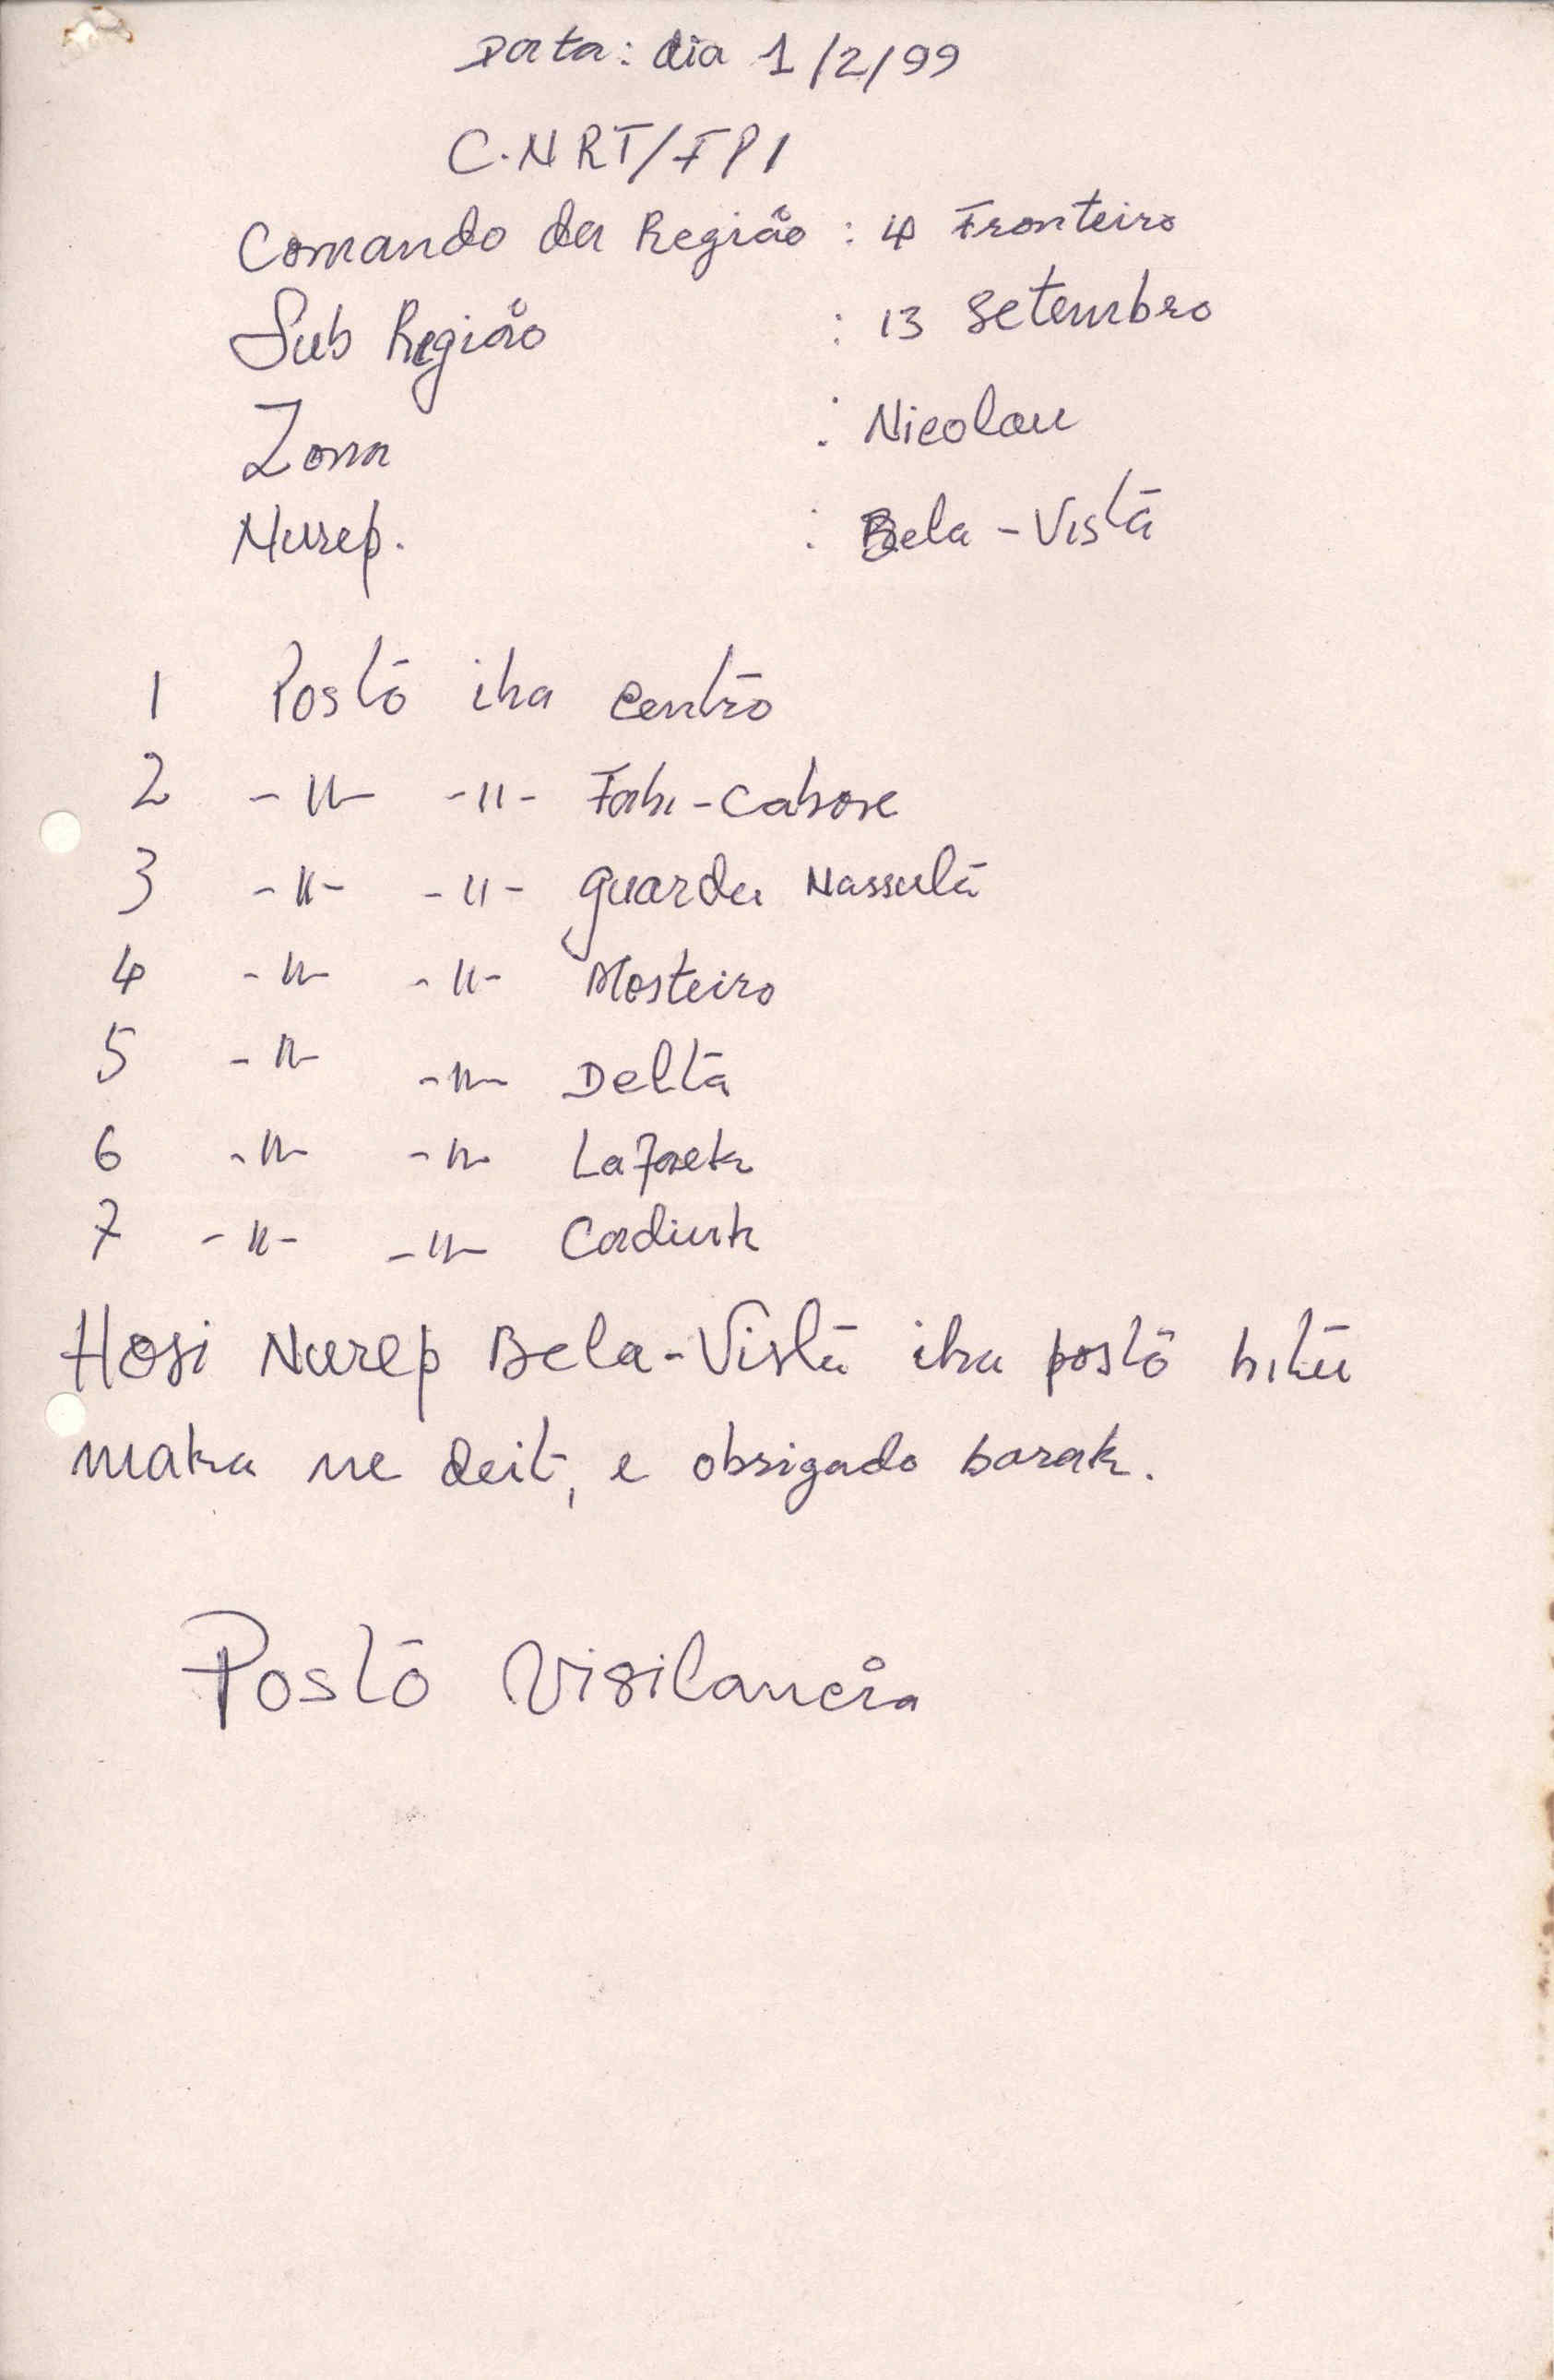 Data: dia 1/2/99
C.NRT/FPI
Comando da Região : 4 Fronteiro
Sub Região : 13 Setembro
Zona : Nicolau
Nurep. : Bela - Vista
1 Posto iha centro
2 -"- -"- Fahi-Cahore
3 -"- -"- guarda Nassuta
4 -"- -"- Mosteiro
5 -"- -"- Delta
6 -"- -"- Lafaek
7 -"- -"- Cadiuk
Hosi Nurep Bela-Vista iha posto hitu
maka ne deit, e obrigado barak.
Posto Vigilancia